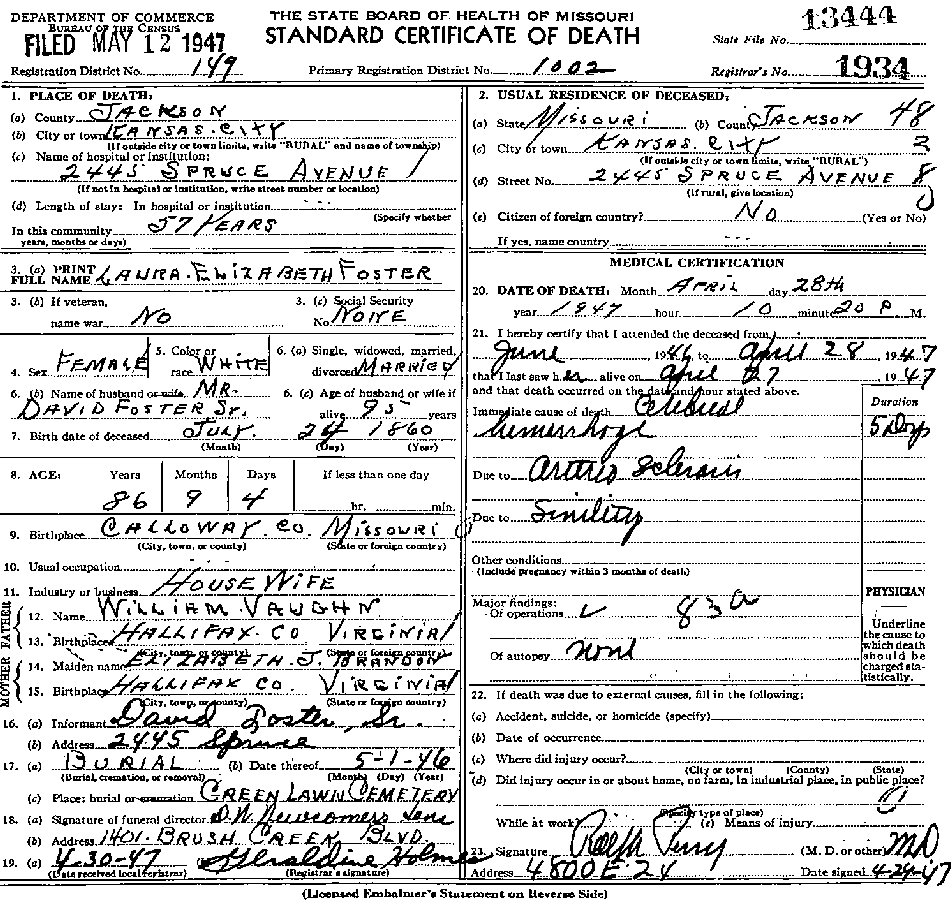 DEPARTMENT OF COMMERCE
BUREAU OF THE CENSUS
FILED MAY 12 1947
THE STATE BOARD OF HEALTH OF MISSOURI
STANDARD CERTIFICATE OF DEATH
State File No. 13444
Registration District No. 149 Primary Registration District No. 1002 Registrar's No. 1934
1. PLACE OF DEATH:
(a) County JACKSON
(b) City or town KANSAS. CITY
(If outside city or town limits, write "RURAL" and name of township)
(c) Name of hospital or institution:
2445 SPRUCE AVENUE
(If not in hospital or institution, write street number or location)
(d) Length of stay: In hospital or institution
(Specify whether
In this community 57 YEARS
years, months or days)
3. (a) PRINT FULL NAME LAURA. ELIZABETH FOSTER
3. (b) If veteran, name war NO
3. (c) Social Security No. NONE
4. Sex FEMALE 5. Color or race WHITE 6. (a) Single, widowed, married, divorced MARRIED
6. (b) Name of husband or wife MR. DAVID FOSTER Sr. 6. (c) Age of husband or wife if alive 95 years
7. Birth date of deceased JULY. 24 1860
(Month) (Day) (Year)
8. AGE: Years Months Days If less than one day
86 9 4 hr. min.
9. Birthplace CALLOWAY. CO. MISSOURI
(City, town, or county) (State or foreign country)
10. Usual occupation
11. Industry or business HOUSE WIFE
FATHER
12. Name WILLIAM. VAUGHN
13. Birthplace HALLIFAX. CO VIRGINIA
(City, town, or county) (State or foreign country)
MOTHER
14. Maiden name ELIZABETH. J. BRANDON
15. Birthplace HALLIFAX CO. VIRGINIA
(City, town, or county) (State or foreign country)
16. (a) Informant David Foster, Sr.
(b) Address 2445 Spruce
17. (a) BURIAL (b) Date thereof 5-1-46
(Burial, cremation, or removal) (Month) (Day) (Year)
(c) Place: burial or cremation GREEN LAWN CEMETERY
18. (a) Signature of funeral director D. W. Newcomers Sons
(b) Address 1401. BRUSH CREEK BLVD.
19. (a) 4-30-47 Geraldine Holmes
(Date received local registrar) (Registrar's signature)
2. USUAL RESIDENCE OF DECEASED:
(a) State MISSOURI (b) County JACKSON 48
(c) City or town KANSAS. CITY 3
(If outside city or town limits, write "RURAL")
(d) Street No. 2445 SPRUCE AVENUE 8
(If rural, give location) 0
(e) Citizen of foreign country? NO (Yes or No)
If yes, name country
MEDICAL CERTIFICATION
20. DATE OF DEATH: Month APRIL day 28th
year 1947 hour 10 minute 20 P. M.
21. I hereby certify that I attended the deceased from
June 1946 to April 28 1947
that I last saw her alive on April 27 1947
and that death occurred on the date and hour stated above.
Duration
Immediate cause of death Cerebral
hemorrhage 5 Days
Due to Arterio Sclerosis
Due to Sinility
Other conditions
(Include pregnancy within 3 months of death)
Major findings:
Of operations 83a
Of autopsy none
PHYSICIAN
Underline the cause to which death should be charged statistically.
22. If death was due to external causes, fill in the following:
(a) Accident, suicide, or homicide (specify)
(b) Date of occurrence
(c) Where did injury occur?
(City or town) (County) (State)
(d) Did injury occur in or about home, on farm, in industrial place, in public place?
(Specify type of place)
While at work? (e) Means of injury
23. Signature Ralph Perry (M. D. or other) MD
Address 4800 E 24 Date signed 4-29-47
(Licensed Embalmer's Statement on Reverse Side)